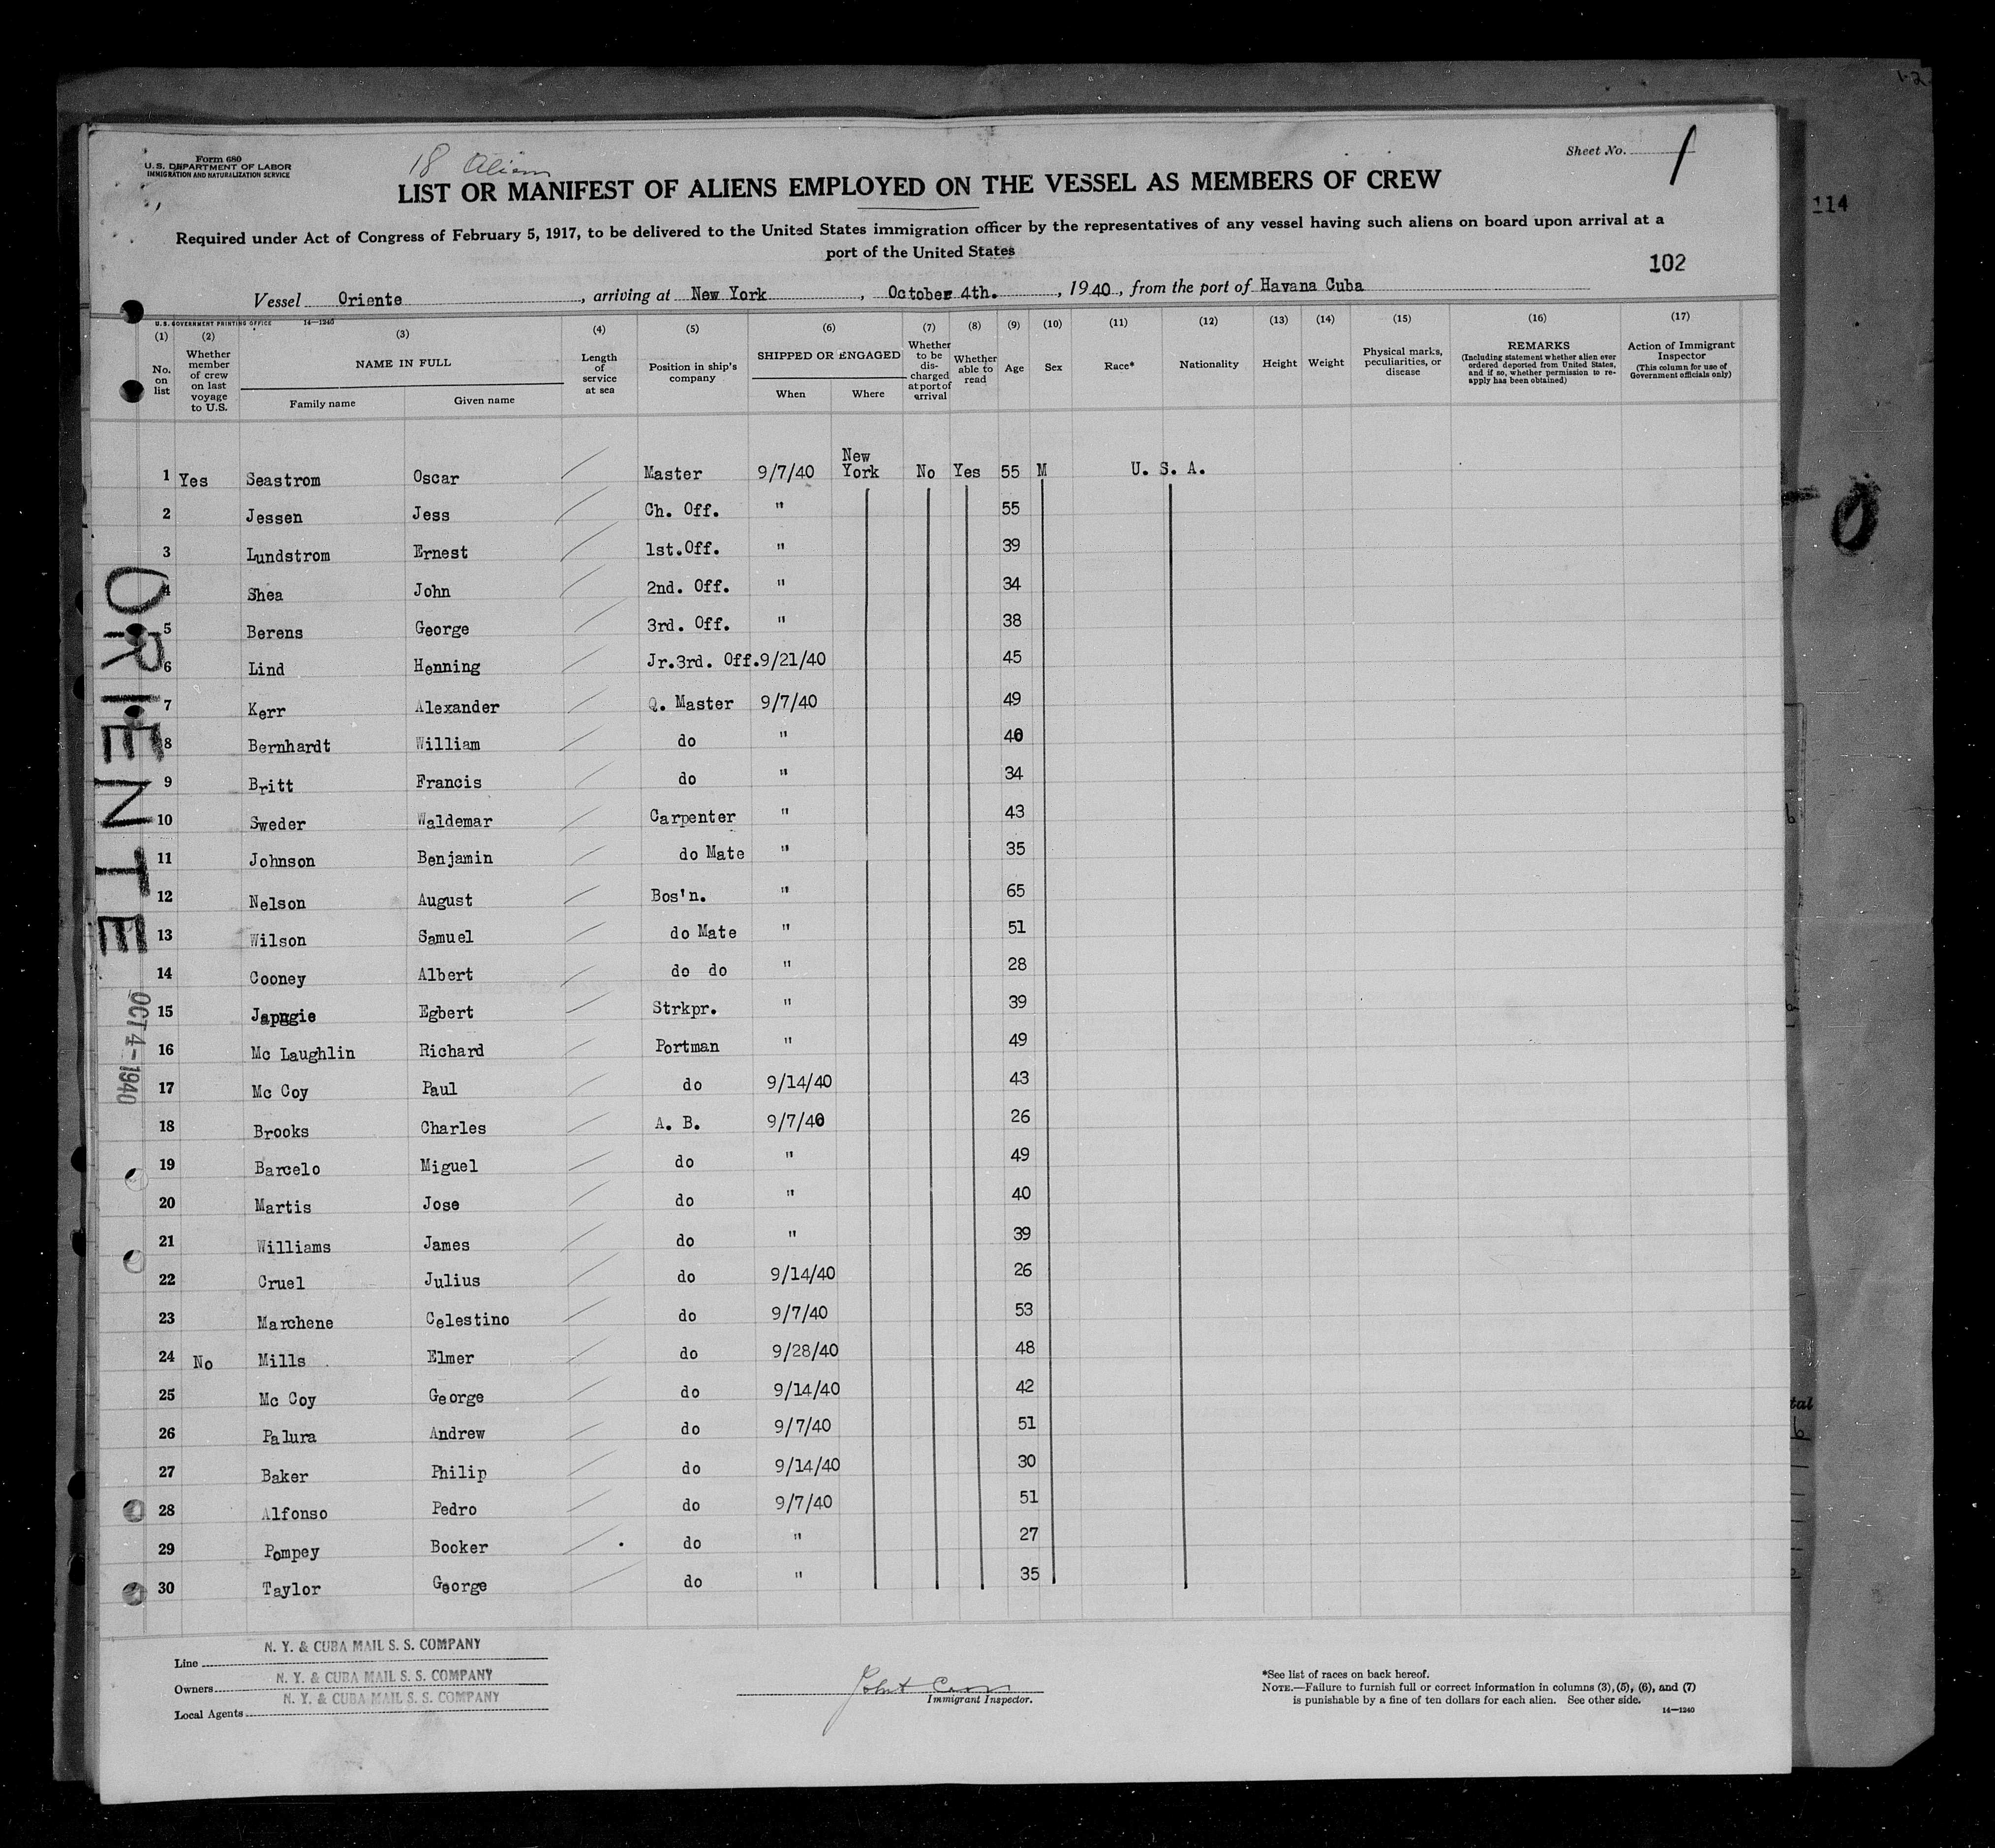 1-2
Form 680
U. S. DEPARTMENT OF LABOR
IMMIGRATION AND NATURALIZATION SERVICE
18 Aliens
Sheet No. 1
LIST OR MANIFEST OF ALIENS EMPLOYED ON THE VESSEL AS MEMBERS OF CREW
114
Required under Act of Congress of February 5, 1917, to be delivered to the United States immigration officer by the representatives of any vessel having such aliens on board upon arrival at a
port of the United States
102
Vessel Oriente, arriving at New York, October 4th., 1940, from the port of Havana Cuba
U. S. GOVERNMENT PRINTING OFFICE 14—1240
(1) (2) (3) (4) (5) (6) (7) (8) (9) (10) (11) (12) (13) (14) (15) (16) (17)
No. on list
Whether member of crew on last voyage to U.S.
NAME IN FULL
Family name Given name
Length of service at sea
Position in ship's company
SHIPPED OR ENGAGED
When Where
Whether to be discharged at port of arrival
Whether able to read
Age
Sex
Race*
Nationality
Height
Weight
Physical marks, peculiarities, or disease
REMARKS
(Including statement whether alien ever ordered deported from United States, and if so, whether permission to reapply has been obtained)
Action of Immigrant Inspector
(This column for use of Government officials only)
1 Yes Seastrom Oscar Master 9/7/40 New York No Yes 55 M U. S. A.
2 Jessen Jess Ch. Off. " 55
3 Lundstrom Ernest 1st.Off. " 39
4 Shea John 2nd. Off. " 34
5 Berens George 3rd. Off. " 38
6 Lind Henning Jr.3rd. Off. 9/21/40 45
7 Kerr Alexander Q. Master 9/7/40 49
8 Bernhardt William do " 40
9 Britt Francis do " 34
10 Sweder Waldemar Carpenter " 43
11 Johnson Benjamin do Mate " 35
12 Nelson August Bos'n. " 65
13 Wilson Samuel do Mate " 51
14 Cooney Albert do do " 28
15 Egbert Strkpr. " 39
16 Mc Laughlin Richard Portman " 49
17 Mc Coy Paul do 9/14/40 43
18 Brooks Charles A. B. 9/7/40 26
19 Barcelo Miguel do " 49
20 Martis Jose do " 40
21 Williams James do " 39
22 Cruel Julius do 9/14/40 26
23 Marchene Celestino do 9/7/40 53
24 No Mills Elmer do 9/28/40 48
25 Mc Coy George do 9/14/40 42
26 Palura Andrew do 9/7/40 51
27 Baker Philip do 9/14/40 30
28 Alfonso Pedro do 9/7/40 51
29 Pompey Booker do " 27
30 Taylor George do " 35
ORIENTE
OCT 4-1940
tal
Line N. Y. & CUBA MAIL S. S. COMPANY
Owners N. Y. & CUBA MAIL S. S. COMPANY
Local Agents N. Y. & CUBA MAIL S. S. COMPANY
Immigrant Inspector.
*See list of races on back hereof.
NOTE.—Failure to furnish full or correct information in columns (3), (5), (6), and (7)
is punishable by a fine of ten dollars for each alien. See other side.
14—1240